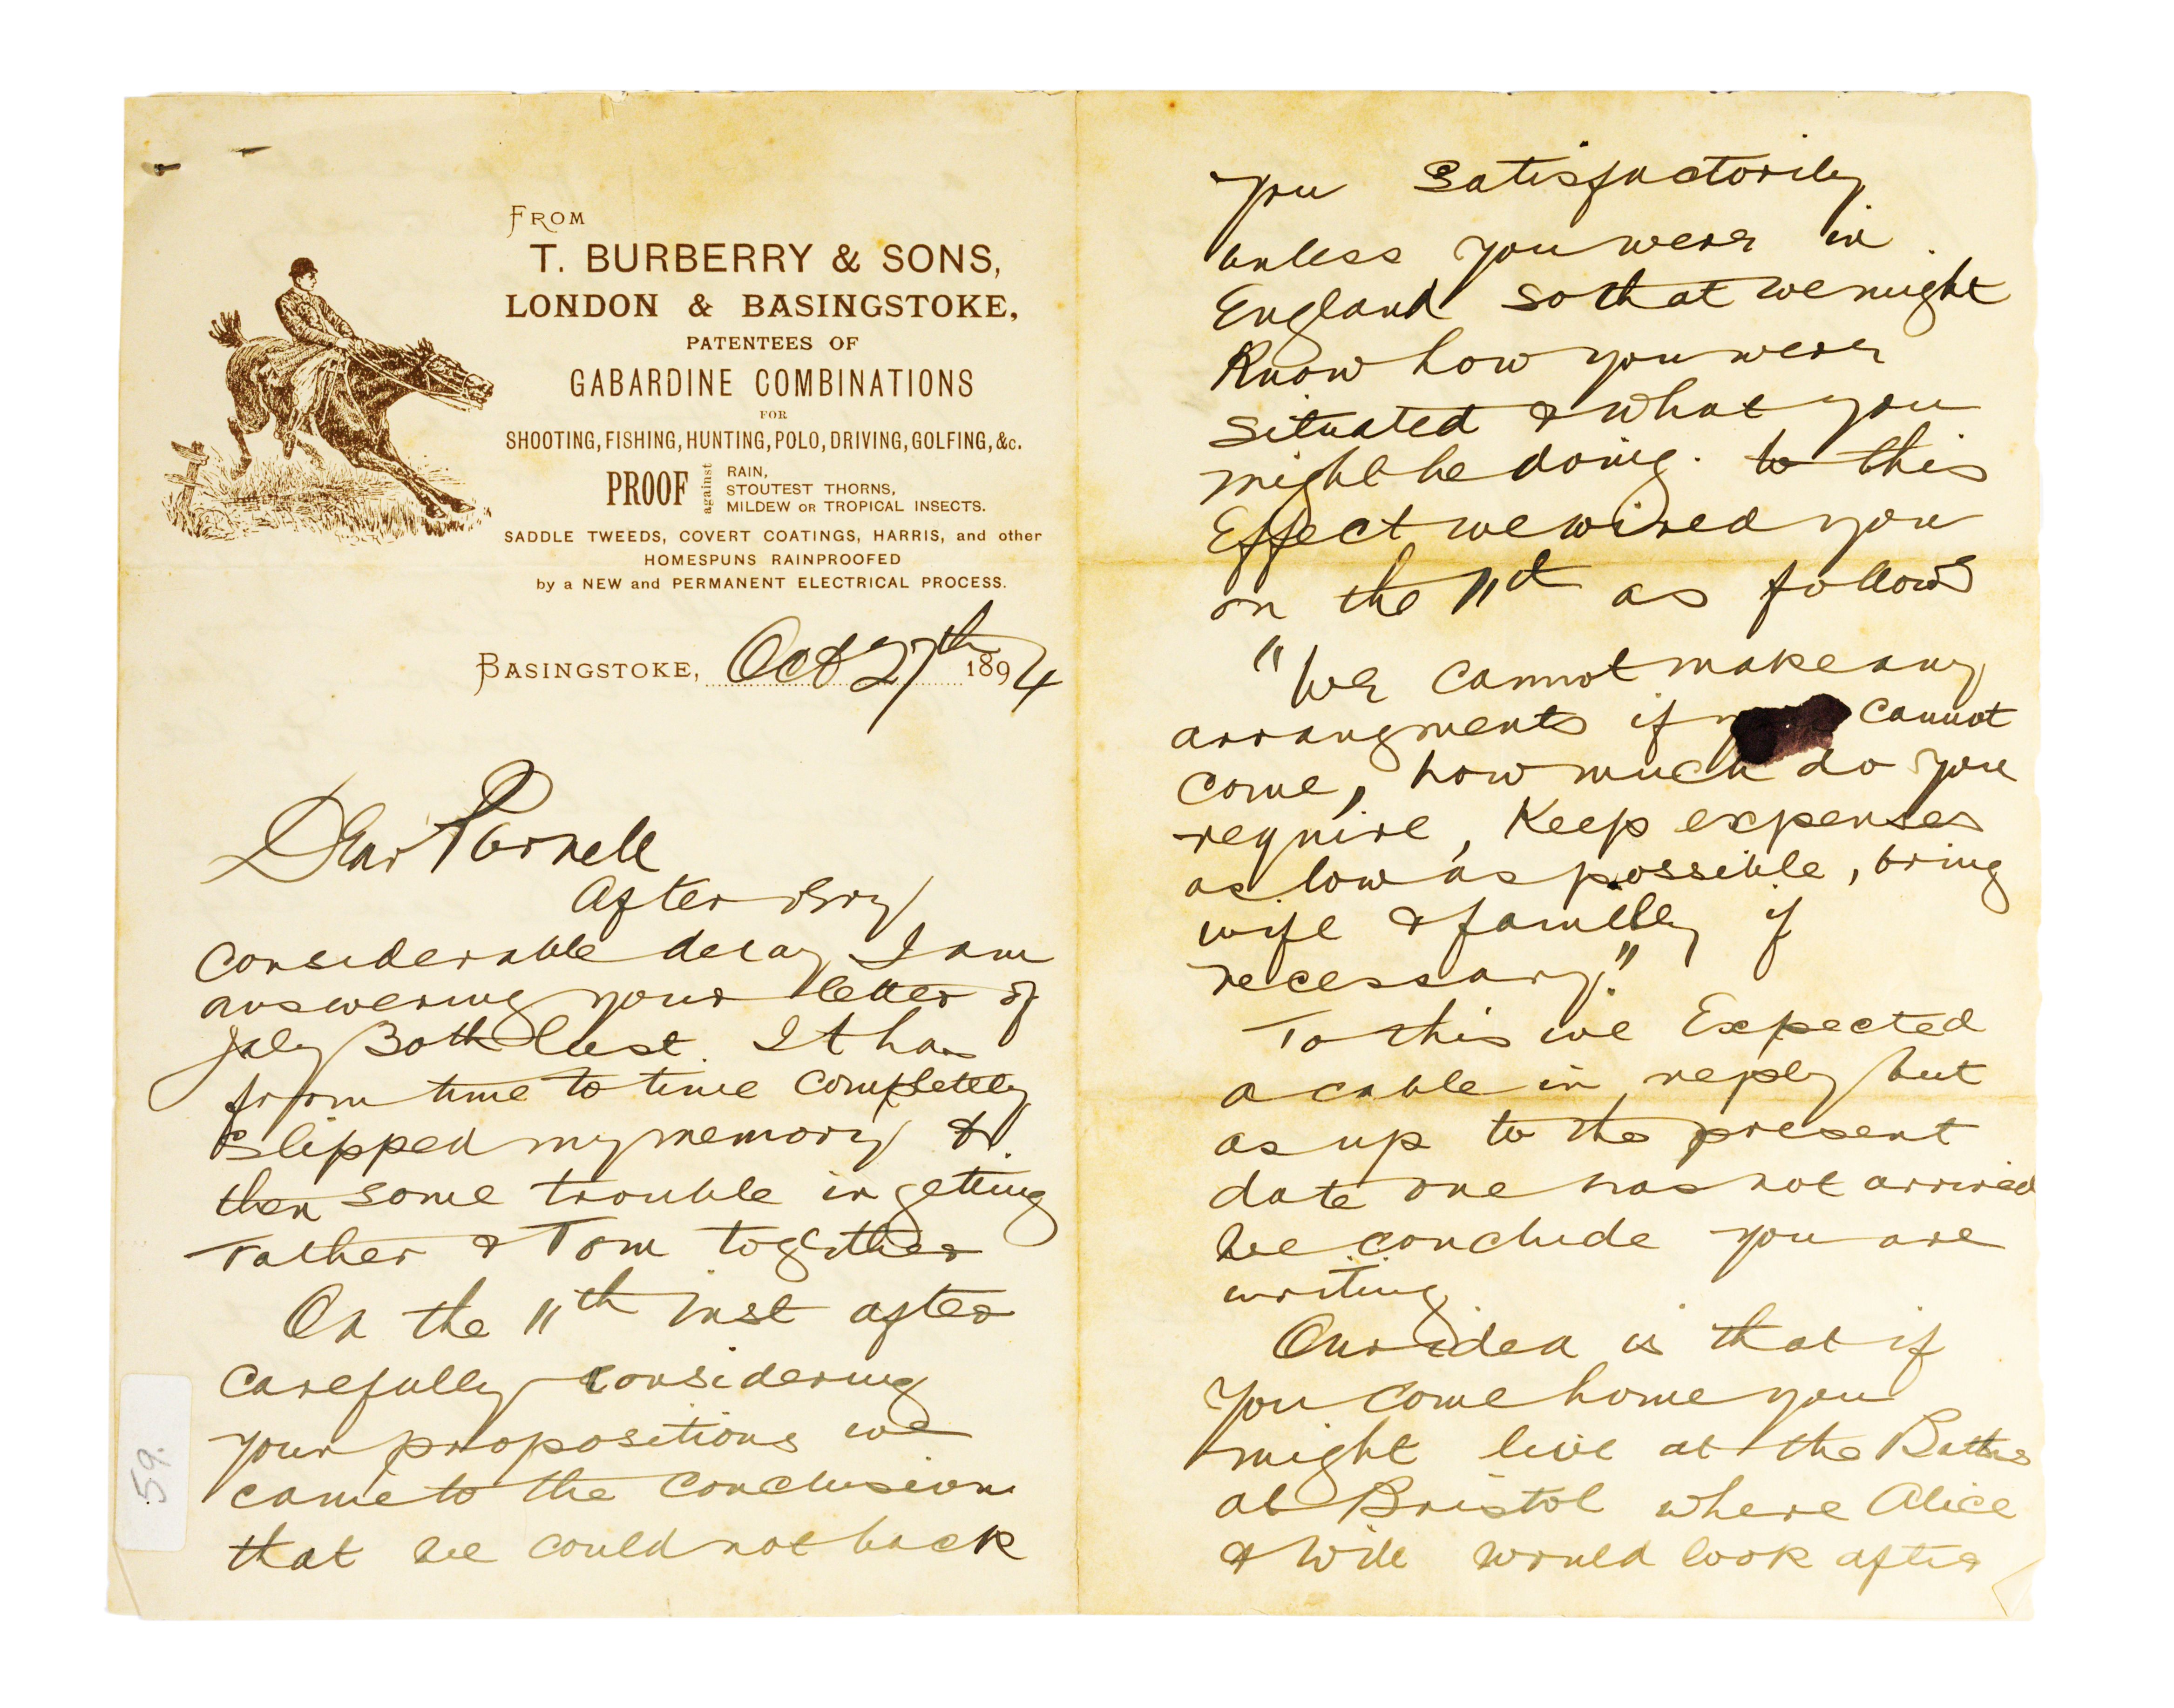 FROM
T. BURBERRY & SONS,
LONDON & BASINGSTOKE,
PATENTEES OF
GABARDINE COMBINATIONS
FOR
SHOOTING, FISHING, HUNTING, POLO, DRIVING, GOLFING, &c.
PROOF against RAIN,
STOUTEST THORNS,
MILDEW OR TROPICAL INSECTS.
SADDLE TWEEDS, COVERT COATINGS, HARRIS, and other
HOMESPUNS RAINPROOFED
by a NEW and PERMANENT ELECTRICAL PROCESS.
BASINGSTOKE, Oct 27th 1894
Dear Parnell
After very
considerable delay I am
answering your letter of
July 30th last. It has
from time to time completely
slipped my memory &
then some trouble in getting
Father & Tom together
On the 11th inst after
carefully considering
your propositions we
came to the conclusion
that we could not back
59.
you satisfactorily
unless you were in
England so that we might
Know how you were
situated & what you
might be doing. to this
Effect we wired you
on the 11th as follows
"We cannot make any
arrangments if cannot
come, how much do you
require, Keep expenses
as low as possible, bring
wife & familly if
necessary."
To this we Expected
a cable in reply but
as up to the present
date one has not arrived
we conclude you are
writing
Our idea is that if
you come home you
might live at the Baths
at Bristol where Alice
& Will would look after